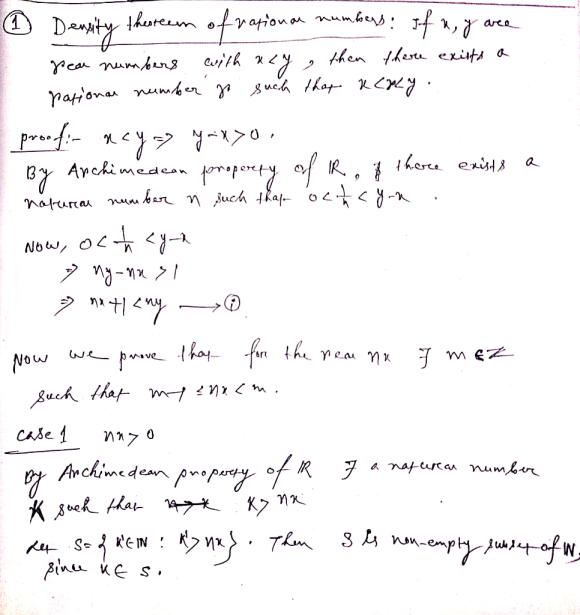 ① Density theorem of rational numbers: If x, y are
real numbers with x<y, then there exists a
rational number r such that x<r<y.
proof:- x<y ⇒ y-x>0.
By Archimedean property of ℝ, ∃ there exists a
natural number n such that 0<1/n<y-x.
Now, 0<1/n<y-x
⇒ ny-nx>1
⇒ nx+1<ny ⟶ ①
Now we prove that for the real nx ∃ m∈Z
such that m-1≤nx<m.
case 1 nx>0
By Archimedean property of ℝ ∃ a natural number
K such that K>nx
Let S={K'∈ℕ : K'>nx}. Then S is non-empty subset of ℕ,
since K∈S.